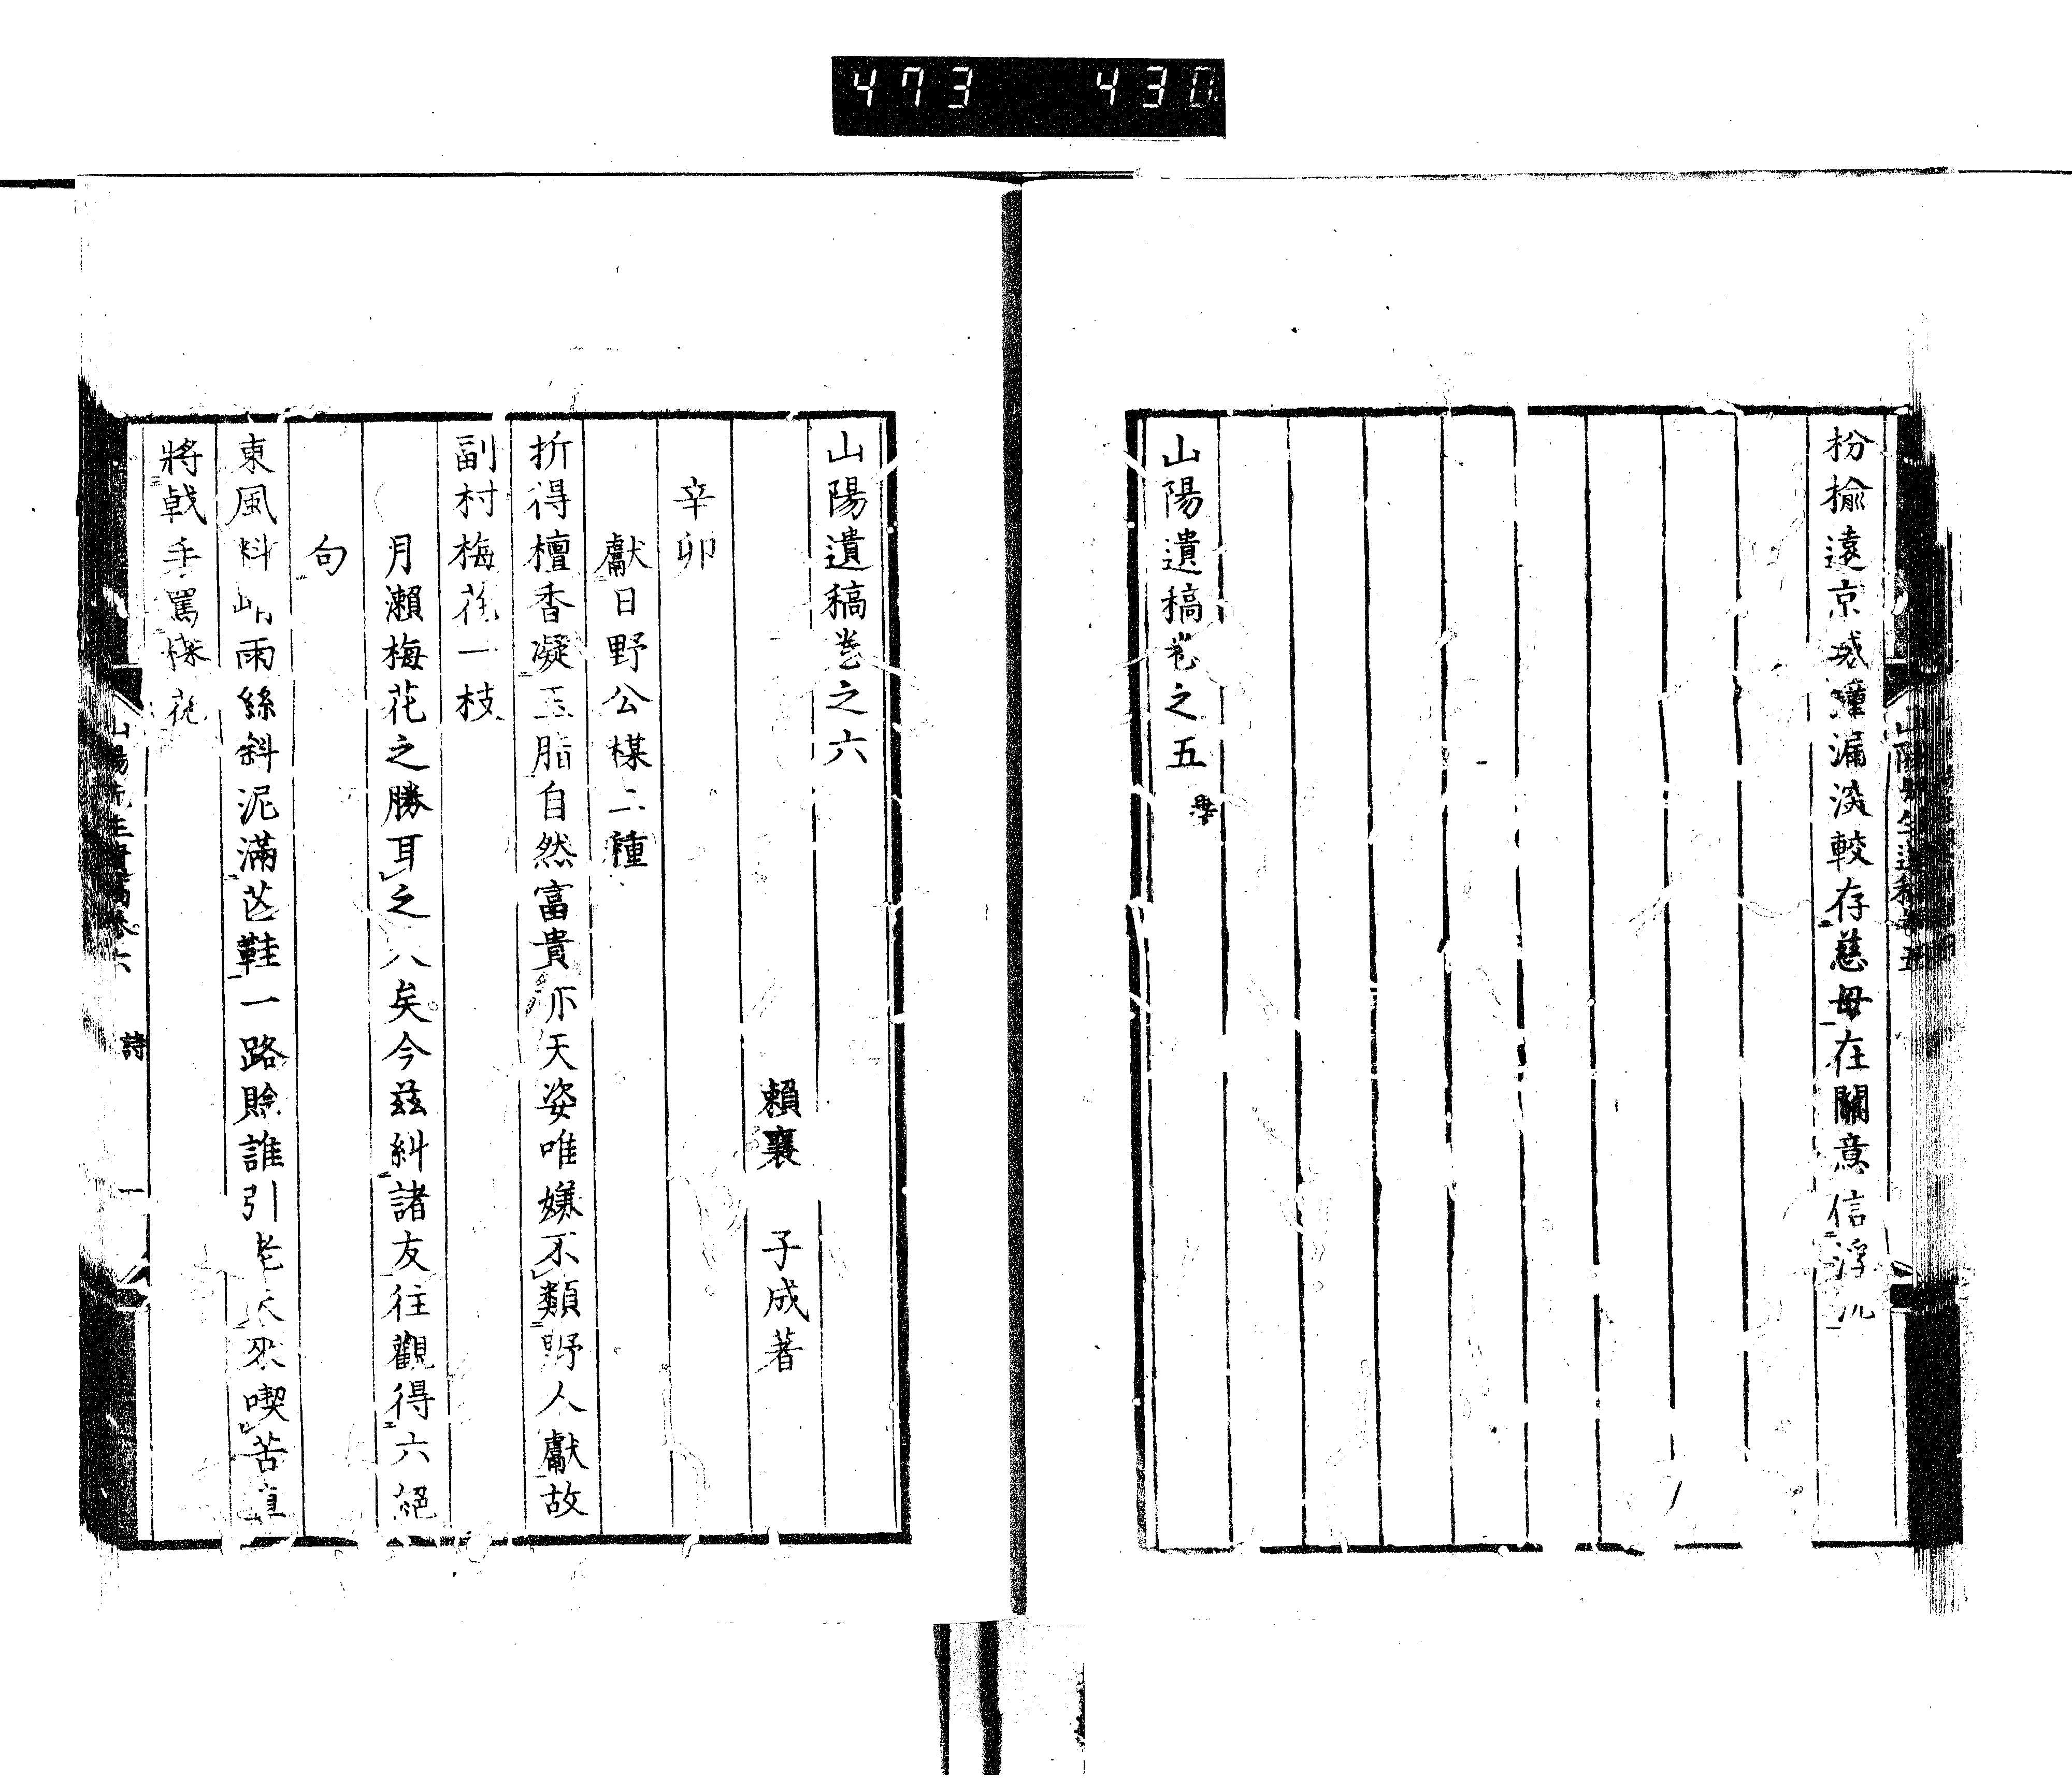 473 430
枌榆遠京城鐘漏淡較存慈母在關意信浮沉
山陽遺稿卷之五 畢
山陽先生遺稿卷五
山陽遺稿卷之六
賴襄 子成著
辛卯
獻日野公楳二種
折得檀香凝玉脂自然富貴亦天姿唯嫌不類野人獻故
副村梅花一枝
月瀨梅花之勝耳之八矣今茲糾諸友往觀得六絕
句
東風料峭雨絲斜泥滿芒鞋一路賒誰引老夫來喫苦直
將戟手罵楳花
山陽先生遺稿卷六 詩 一